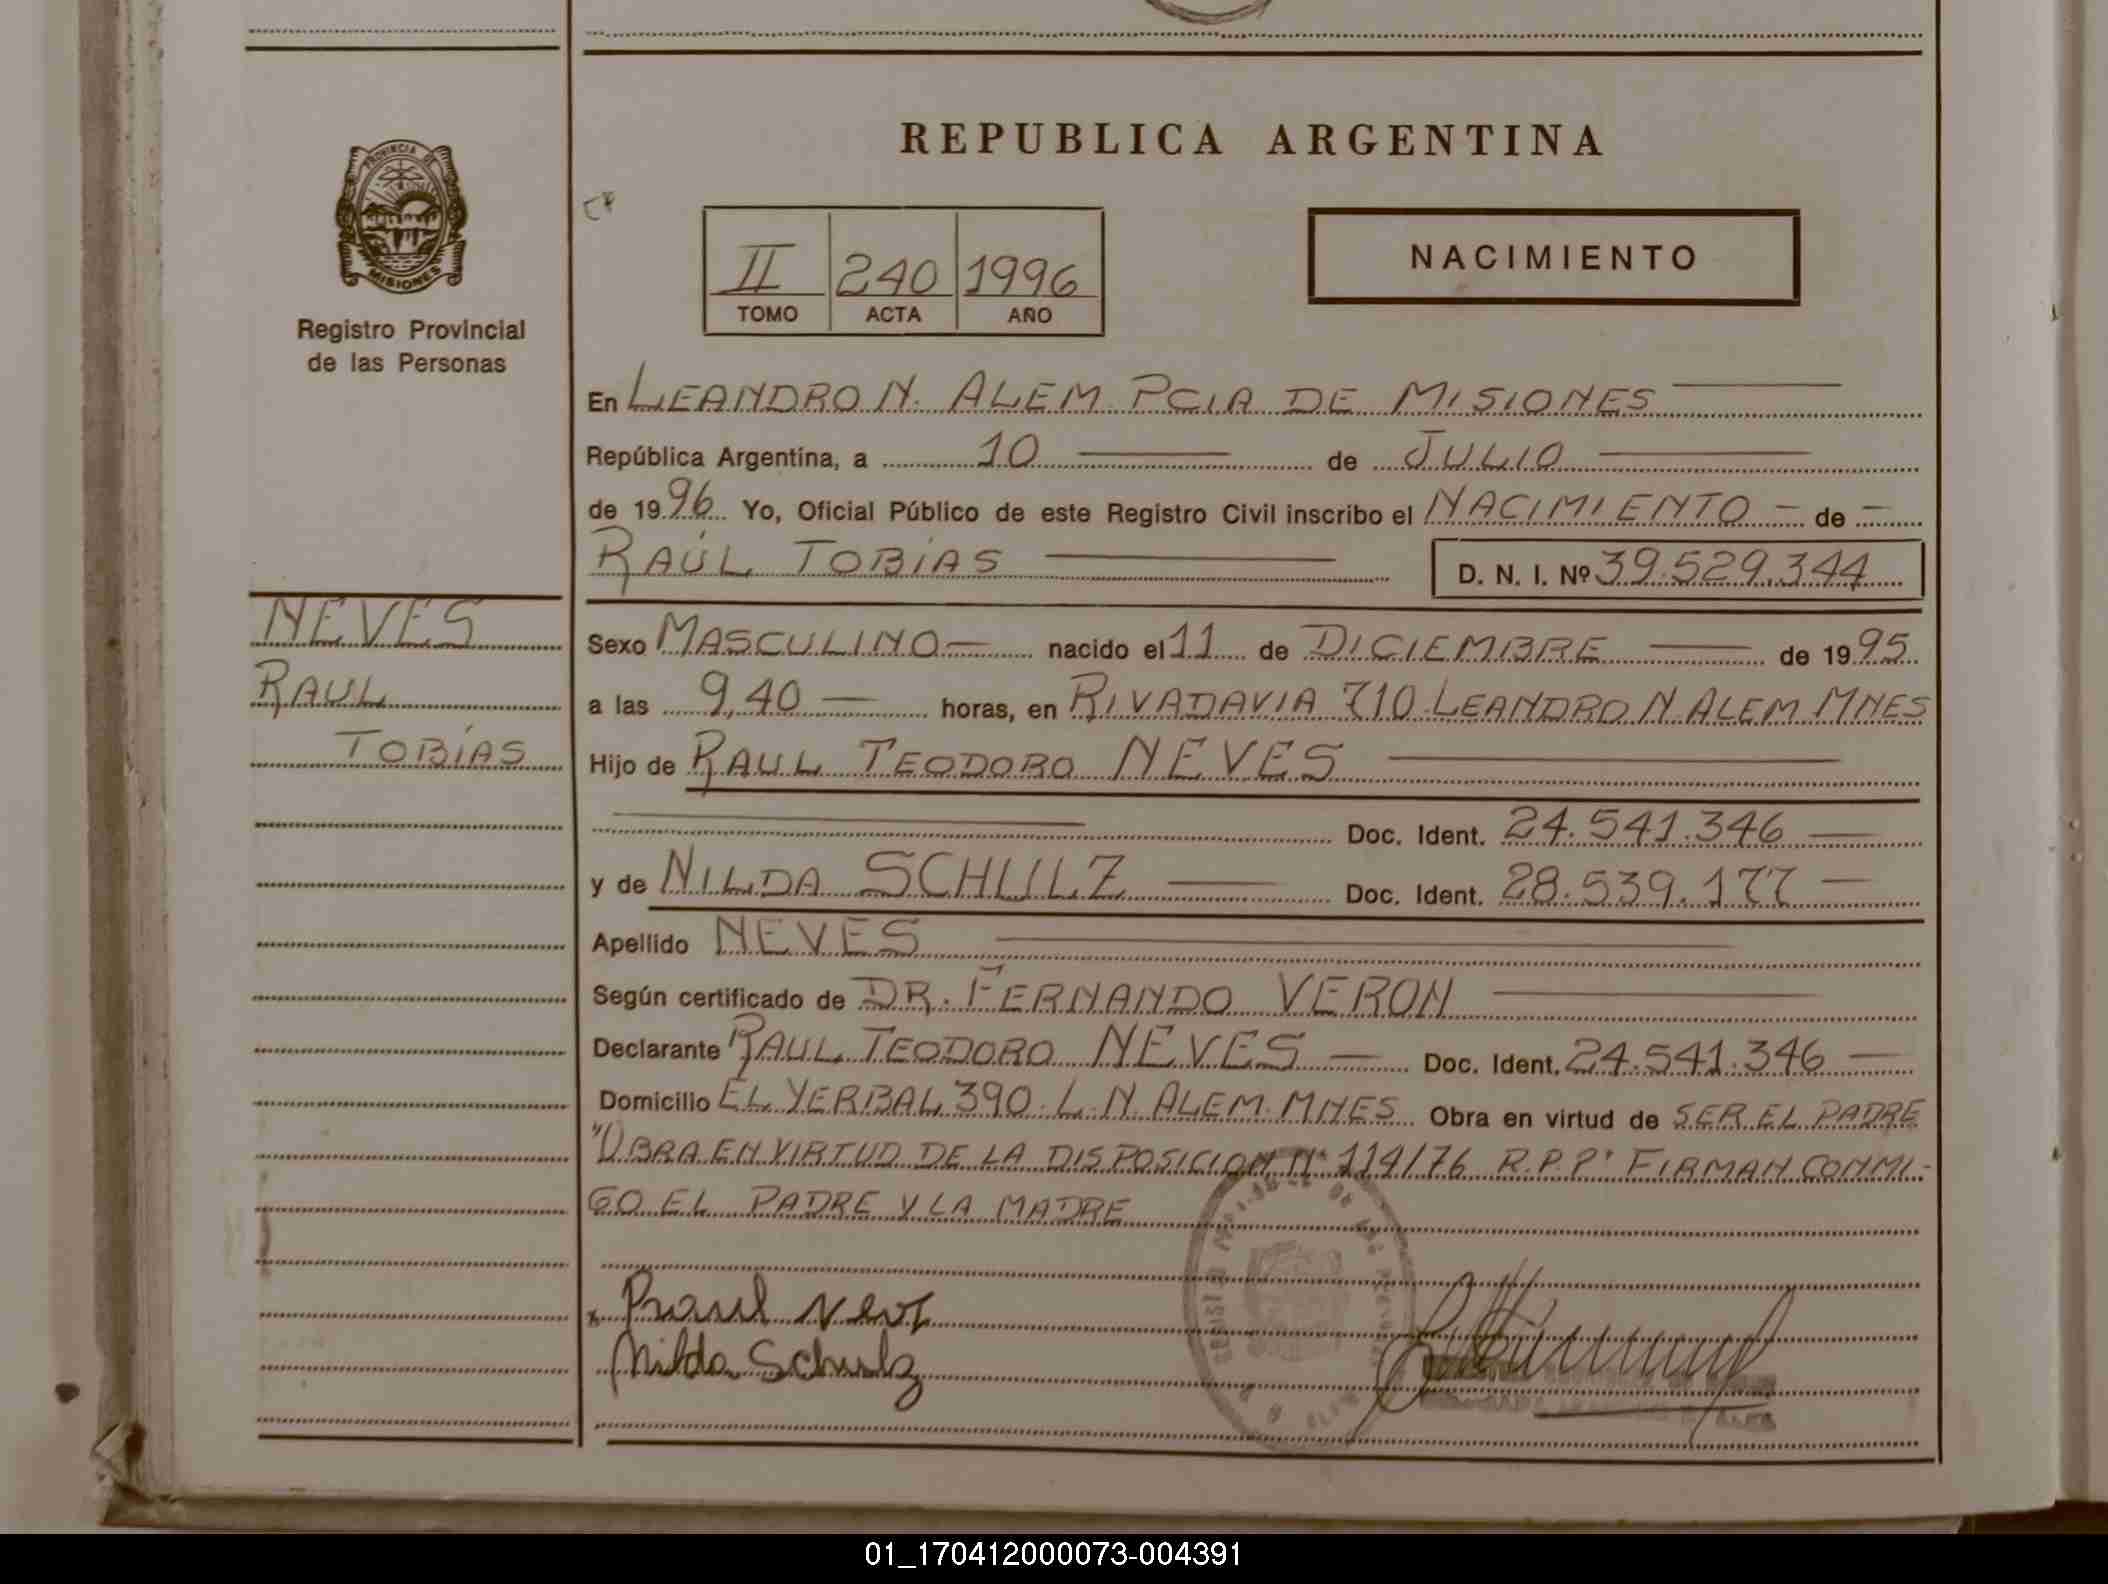 REPUBLICA ARGENTINA
PROVINCIA DE
MISIONES
Registro Provincial
de las Personas
II 240 1996
TOMO ACTA AÑO
NACIMIENTO
En LEANDRO N. ALEM PCIA DE MISIONES
República Argentina, a 10 de JULIO
de 1996 Yo, Oficial Público de este Registro Civil inscribo el NACIMIENTO - de -
RAÚL TOBÍAS D. N. I. Nº 39.529.344
NEVES
RAUL
TOBÍAS
Sexo MASCULINO nacido el 11 de DICIEMBRE de 1995
a las 9,40 horas, en RIVADAVIA 710 LEANDRO N ALEM MNES
Hijo de RAUL TEODORO NEVES
Doc. Ident. 24.541.346
y de NILDA SCHULZ Doc. Ident. 28.539.177
Apellido NEVES
Según certificado de DR. FERNANDO VERON
Declarante RAUL TEODORO NEVES Doc. Ident. 24.541.346
Domicilio EL YERBAL 390 L. N ALEM MNES Obra en virtud de SER EL PADRE
"OBRA EN VIRTUD DE LA DISPOSICION Nº 114/76 R.P.P" FIRMAN CONMI-
GO EL PADRE Y LA MADRE
Raul Neves
Nilda Schulz
01_170412000073-004391